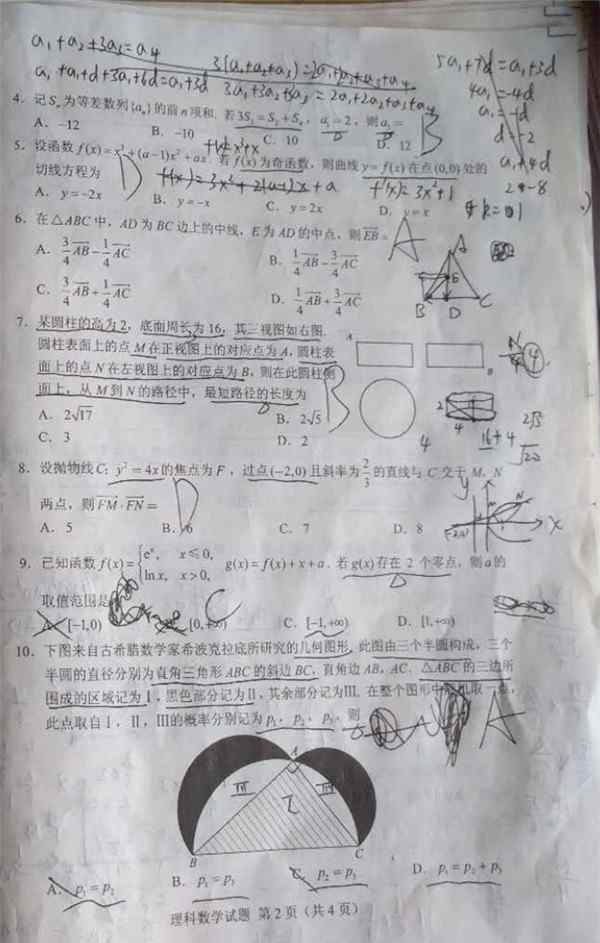 a₁+a₂+3a₃=a₄
a₁+a₁+d+3a₁+6d=a₁+3d
3(a₁+a₂+a₃)=2a₁+a₂+a₃+a₄
3a₁+3a₂+3a₃=2a₁+2a₂+a₃+a₄
5a₁+7d=a₁+3d
4a₁=-4d
a₁=-d
d=-2
a₁+4d
2+-8
4. 记Sₙ为等差数列{aₙ}的前n项和. 若3S₃=S₂+S₄, a₁=2, 则a₅=
A. -12 B. -10 C. 10 D. 12
B
5. 设函数f(x)=x³+(a-1)x²+ax. 若f(x)为奇函数, 则曲线y=f(x)在点(0,0)处的
切线方程为
D
f(x)=x³+x
f'(x)=3x²+2(a-1)x+a
f'(x)=3x²+1
A. y=-2x B. y=-x C. y=2x D. y=x
6. 在△ABC中, AD为BC边上的中线, E为AD的中点, 则EB=
A
A. 3/4 AB - 1/4 AC B. 1/4 AB - 3/4 AC
C. 3/4 AB + 1/4 AC D. 1/4 AB + 3/4 AC
A
E
B D C
7. 某圆柱的高为2, 底面周长为16, 其三视图如右图.
圆柱表面上的点M在正视图上的对应点为A, 圆柱表
面上的点N在左视图上的对应点为B, 则在此圆柱侧
面上, 从M到N的路径中, 最短路径的长度为
B
A. 2√17 B. 2√5
C. 3 D. 2
A
B
4
2
4
16+4
2√5
√20
8. 设抛物线C: y²=4x的焦点为F, 过点(-2,0)且斜率为2/3的直线与C交于M, N
两点, 则FM·FN=
D
A. 5 B. 6 C. 7 D. 8
y
N
x
(-2,0)
9. 已知函数f(x)={eˣ, x≤0, ln x, x>0, g(x)=f(x)+x+a. 若g(x)存在2个零点, 则a的
取值范围是
C
A. [-1,0) [0,+∞) C. [-1,+∞) D. [1,+∞)
10. 下图来自古希腊数学家希波克拉底所研究的几何图形, 此图由三个半圆构成, 三个
半圆的直径分别为直角三角形ABC的斜边BC, 直角边AB, AC. △ABC的三边所
围成的区域记为Ⅰ, 黑色部分记为Ⅱ, 其余部分记为Ⅲ. 在整个图形中随机取一点,
此点取自Ⅰ, Ⅱ, Ⅲ的概率分别记为p₁, p₂, p₃, 则
A
A
Ⅲ Ⅰ Ⅲ
B C
A. p₁=p₂ B. p₁=p₃ C. p₂=p₃ D. p₁=p₂+p₃
理科数学试题 第2页(共4页)